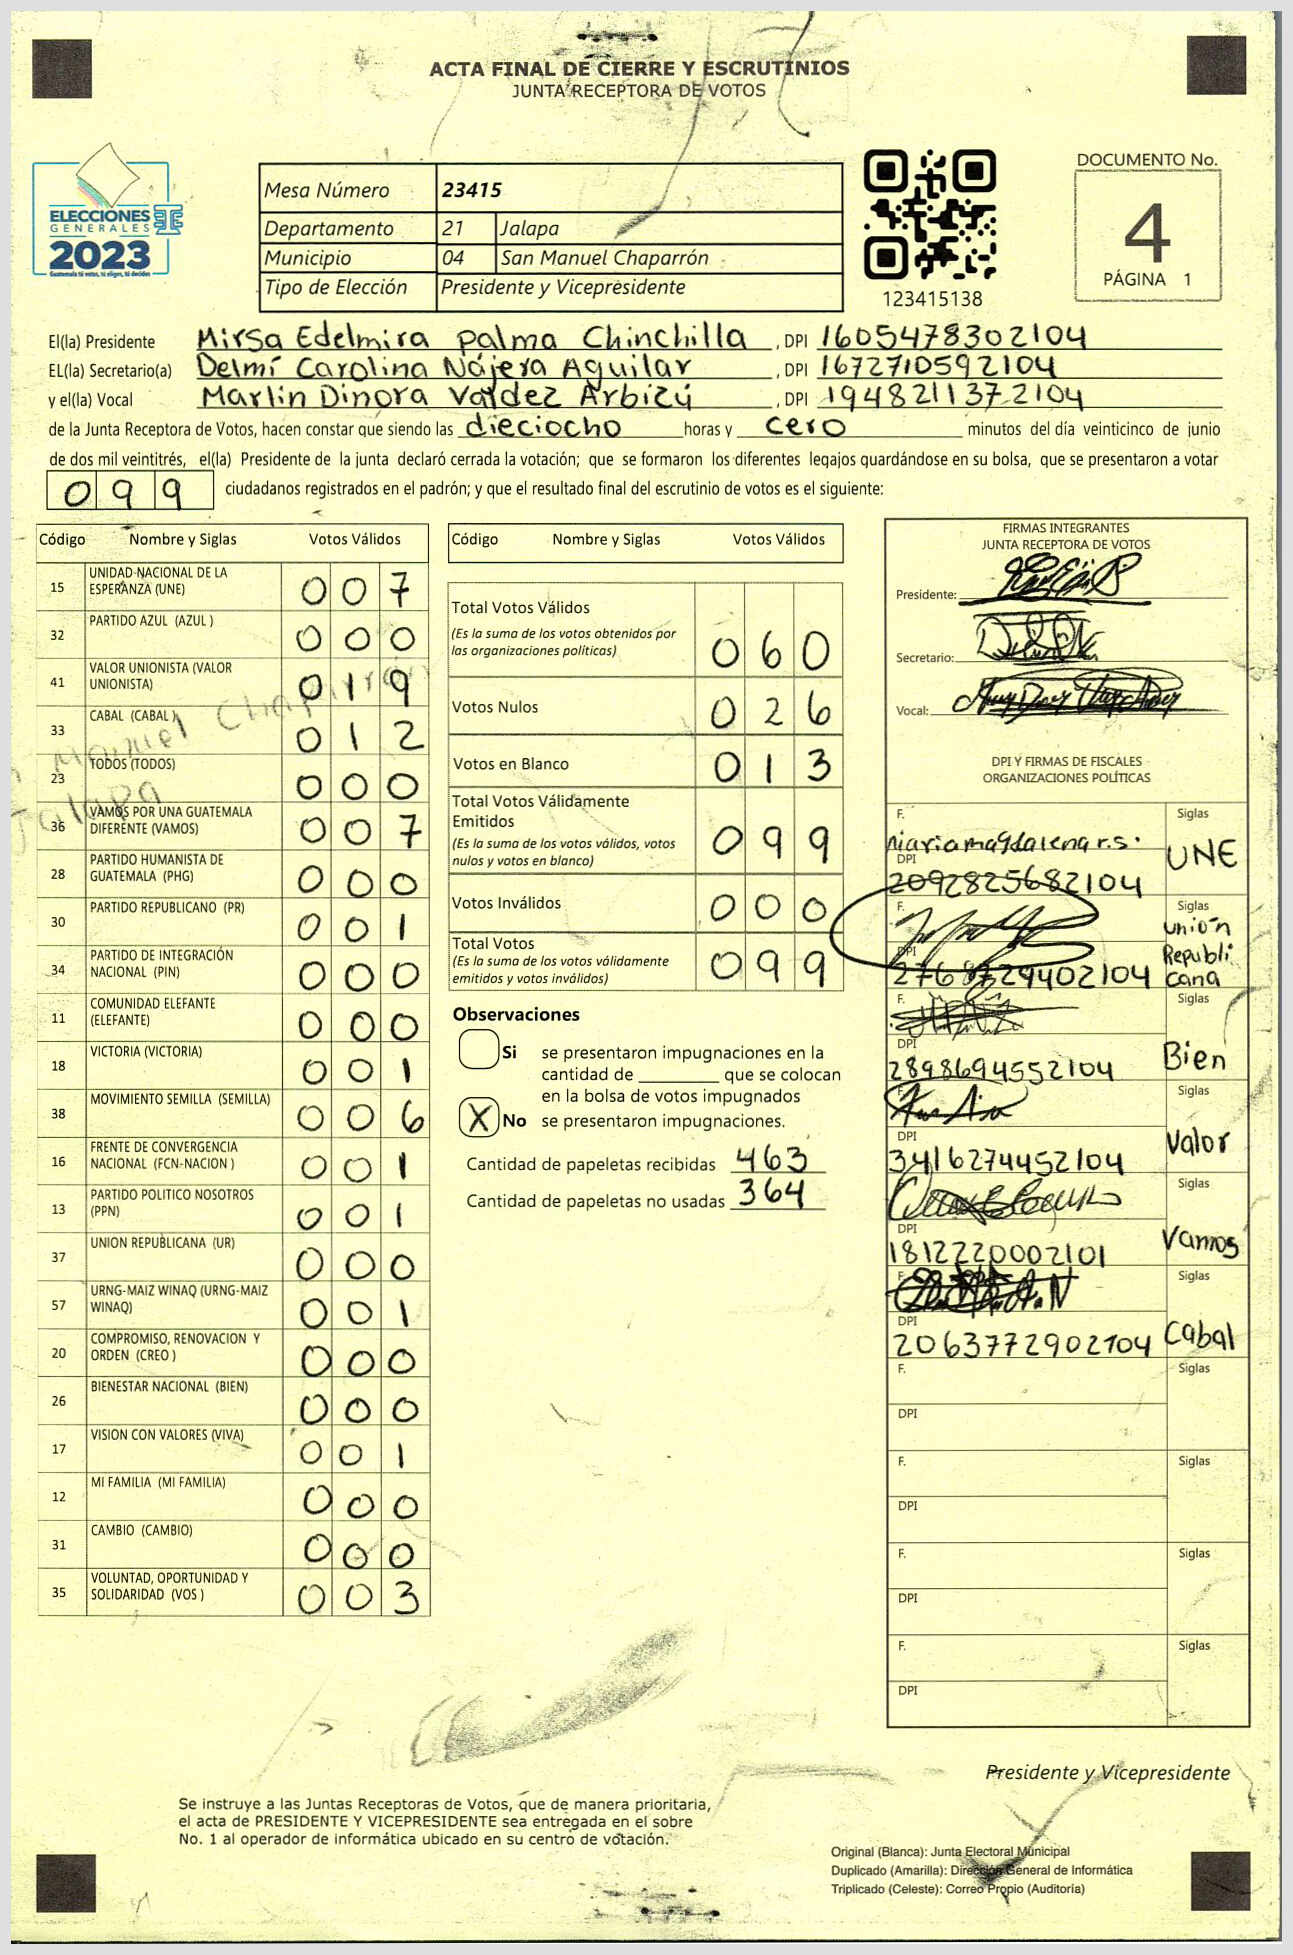 ACTA FINAL DE CIERRE Y ESCRUTINIOS
JUNTA RECEPTORA DE VOTOS
ELECCIONES
GENERALES
2023
Guatemala tú votas, tú eliges, tú decides
Mesa Número 23415
Departamento 21 Jalapa
Municipio 04 San Manuel Chaparrón
Tipo de Elección Presidente y Vicepresidente
123415138
DOCUMENTO No.
4
PÁGINA 1
El(la) Presidente Mirsa Edelmira Palma Chinchilla, DPI 1605478302104
EL(la) Secretario(a) Delmí Carolina Nájera Aguilar, DPI 1672710592104
y el(la) Vocal Marlin Dinora Valdez Arbizú, DPI 1948211372104
de la Junta Receptora de Votos, hacen constar que siendo las dieciocho horas y cero minutos del día veinticinco de junio
de dos mil veintitrés, el(la) Presidente de la junta declaró cerrada la votación; que se formaron los diferentes legajos guardándose en su bolsa, que se presentaron a votar
099 ciudadanos registrados en el padrón; y que el resultado final del escrutinio de votos es el siguiente:
Código Nombre y Siglas Votos Válidos
15 UNIDAD NACIONAL DE LA ESPERANZA (UNE) 007
32 PARTIDO AZUL (AZUL ) 000
41 VALOR UNIONISTA (VALOR UNIONISTA) 019
33 CABAL (CABAL ) 012
23 TODOS (TODOS) 000
36 VAMOS POR UNA GUATEMALA DIFERENTE (VAMOS) 007
28 PARTIDO HUMANISTA DE GUATEMALA (PHG) 000
30 PARTIDO REPUBLICANO (PR) 001
34 PARTIDO DE INTEGRACIÓN NACIONAL (PIN) 000
11 COMUNIDAD ELEFANTE (ELEFANTE) 000
18 VICTORIA (VICTORIA) 001
38 MOVIMIENTO SEMILLA (SEMILLA) 006
16 FRENTE DE CONVERGENCIA NACIONAL (FCN-NACION ) 001
13 PARTIDO POLITICO NOSOTROS (PPN) 001
37 UNION REPUBLICANA (UR) 000
57 URNG-MAIZ WINAQ (URNG-MAIZ WINAQ) 001
20 COMPROMISO, RENOVACION Y ORDEN (CREO ) 000
26 BIENESTAR NACIONAL (BIEN) 000
17 VISION CON VALORES (VIVA) 001
12 MI FAMILIA (MI FAMILIA) 000
31 CAMBIO (CAMBIO) 000
35 VOLUNTAD, OPORTUNIDAD Y SOLIDARIDAD (VOS ) 003
Manuel Chaparrón
Jalapa
Código Nombre y Siglas Votos Válidos
Total Votos Válidos
(Es la suma de los votos obtenidos por
las organizaciones políticas) 060
Votos Nulos 026
Votos en Blanco 013
Total Votos Válidamente
Emitidos
(Es la suma de los votos válidos, votos
nulos y votos en blanco) 099
Votos Inválidos 000
Total Votos
(Es la suma de los votos válidamente
emitidos y votos inválidos) 099
Observaciones
Si se presentaron impugnaciones en la
cantidad de ________ que se colocan
en la bolsa de votos impugnados
X No se presentaron impugnaciones.
Cantidad de papeletas recibidas 463
Cantidad de papeletas no usadas 364
FIRMAS INTEGRANTES
JUNTA RECEPTORA DE VOTOS
Presidente:
Secretario:
Vocal:
DPI Y FIRMAS DE FISCALES
ORGANIZACIONES POLÍTICAS
F. mariamagdalena r.s. Siglas
DPI 2092825682104 UNE
F. Siglas
DPI 2768729402104 Unión Republicana
F. Siglas
DPI 2898694552104 Bien
F. Siglas
DPI 3416274452104 Valor
F. Siglas
DPI 1812220002101 Vamos
F. Siglas
DPI 2063772902104 Cabal
F. Siglas
DPI
F. Siglas
DPI
F. Siglas
DPI
F. Siglas
DPI
Presidente y Vicepresidente
Se instruye a las Juntas Receptoras de Votos, que de manera prioritaria,
el acta de PRESIDENTE Y VICEPRESIDENTE sea entregada en el sobre
No. 1 al operador de informática ubicado en su centro de votación.
Original (Blanca): Junta Electoral Municipal
Duplicado (Amarilla): Dirección General de Informática
Triplicado (Celeste): Correo Propio (Auditoría)